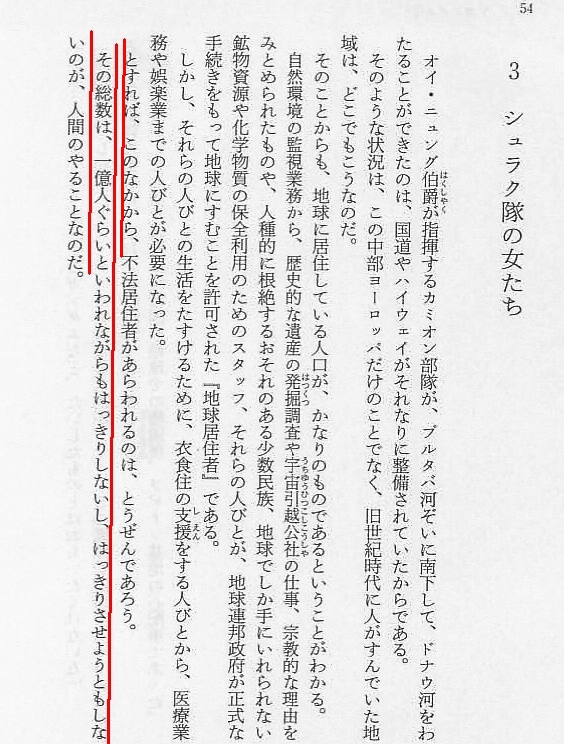 54
3 シュラク隊の女たち
オイ・ニュング伯爵が指揮するカミオン部隊が、ブルタバ河ぞいに南下して、ドナウ河をわ
たることができたのは、国道やハイウェイがそれなりに整備されていたからである。
そのような状況は、この中部ヨーロッパだけのことでなく、旧世紀時代に人がすんでいた地
域は、どこでもこうなのだ。
そのことからも、地球に居住している人口が、かなりのものであるということがわかる。
自然環境の監視業務から、歴史的な遺産の発掘調査や宇宙引越公社の仕事、宗教的な理由を
みとめられたものや、人種的に根絶するおそれのある少数民族、地球でしか手にいれられない
鉱物資源や化学物質の保全利用のためのスタッフ、それらの人びとが、地球連邦政府が正式な
手続きをもって地球にすむことを許可された『地球居住者』である。
しかし、それらの人びとの生活をたすけるために、衣食住の支援をする人びとから、医療業
務や娯楽業までの人びとが必要になった。
とすれば、このなかから、不法居住者があらわれるのは、とうぜんであろう。
その総数は、一億人ぐらいといわれながらもはっきりしないし、はっきりさせようともしな
いのが、人間のやることなのだ。
はくしやく
はつくつ
うちゆうひつこしこうしや
しえん